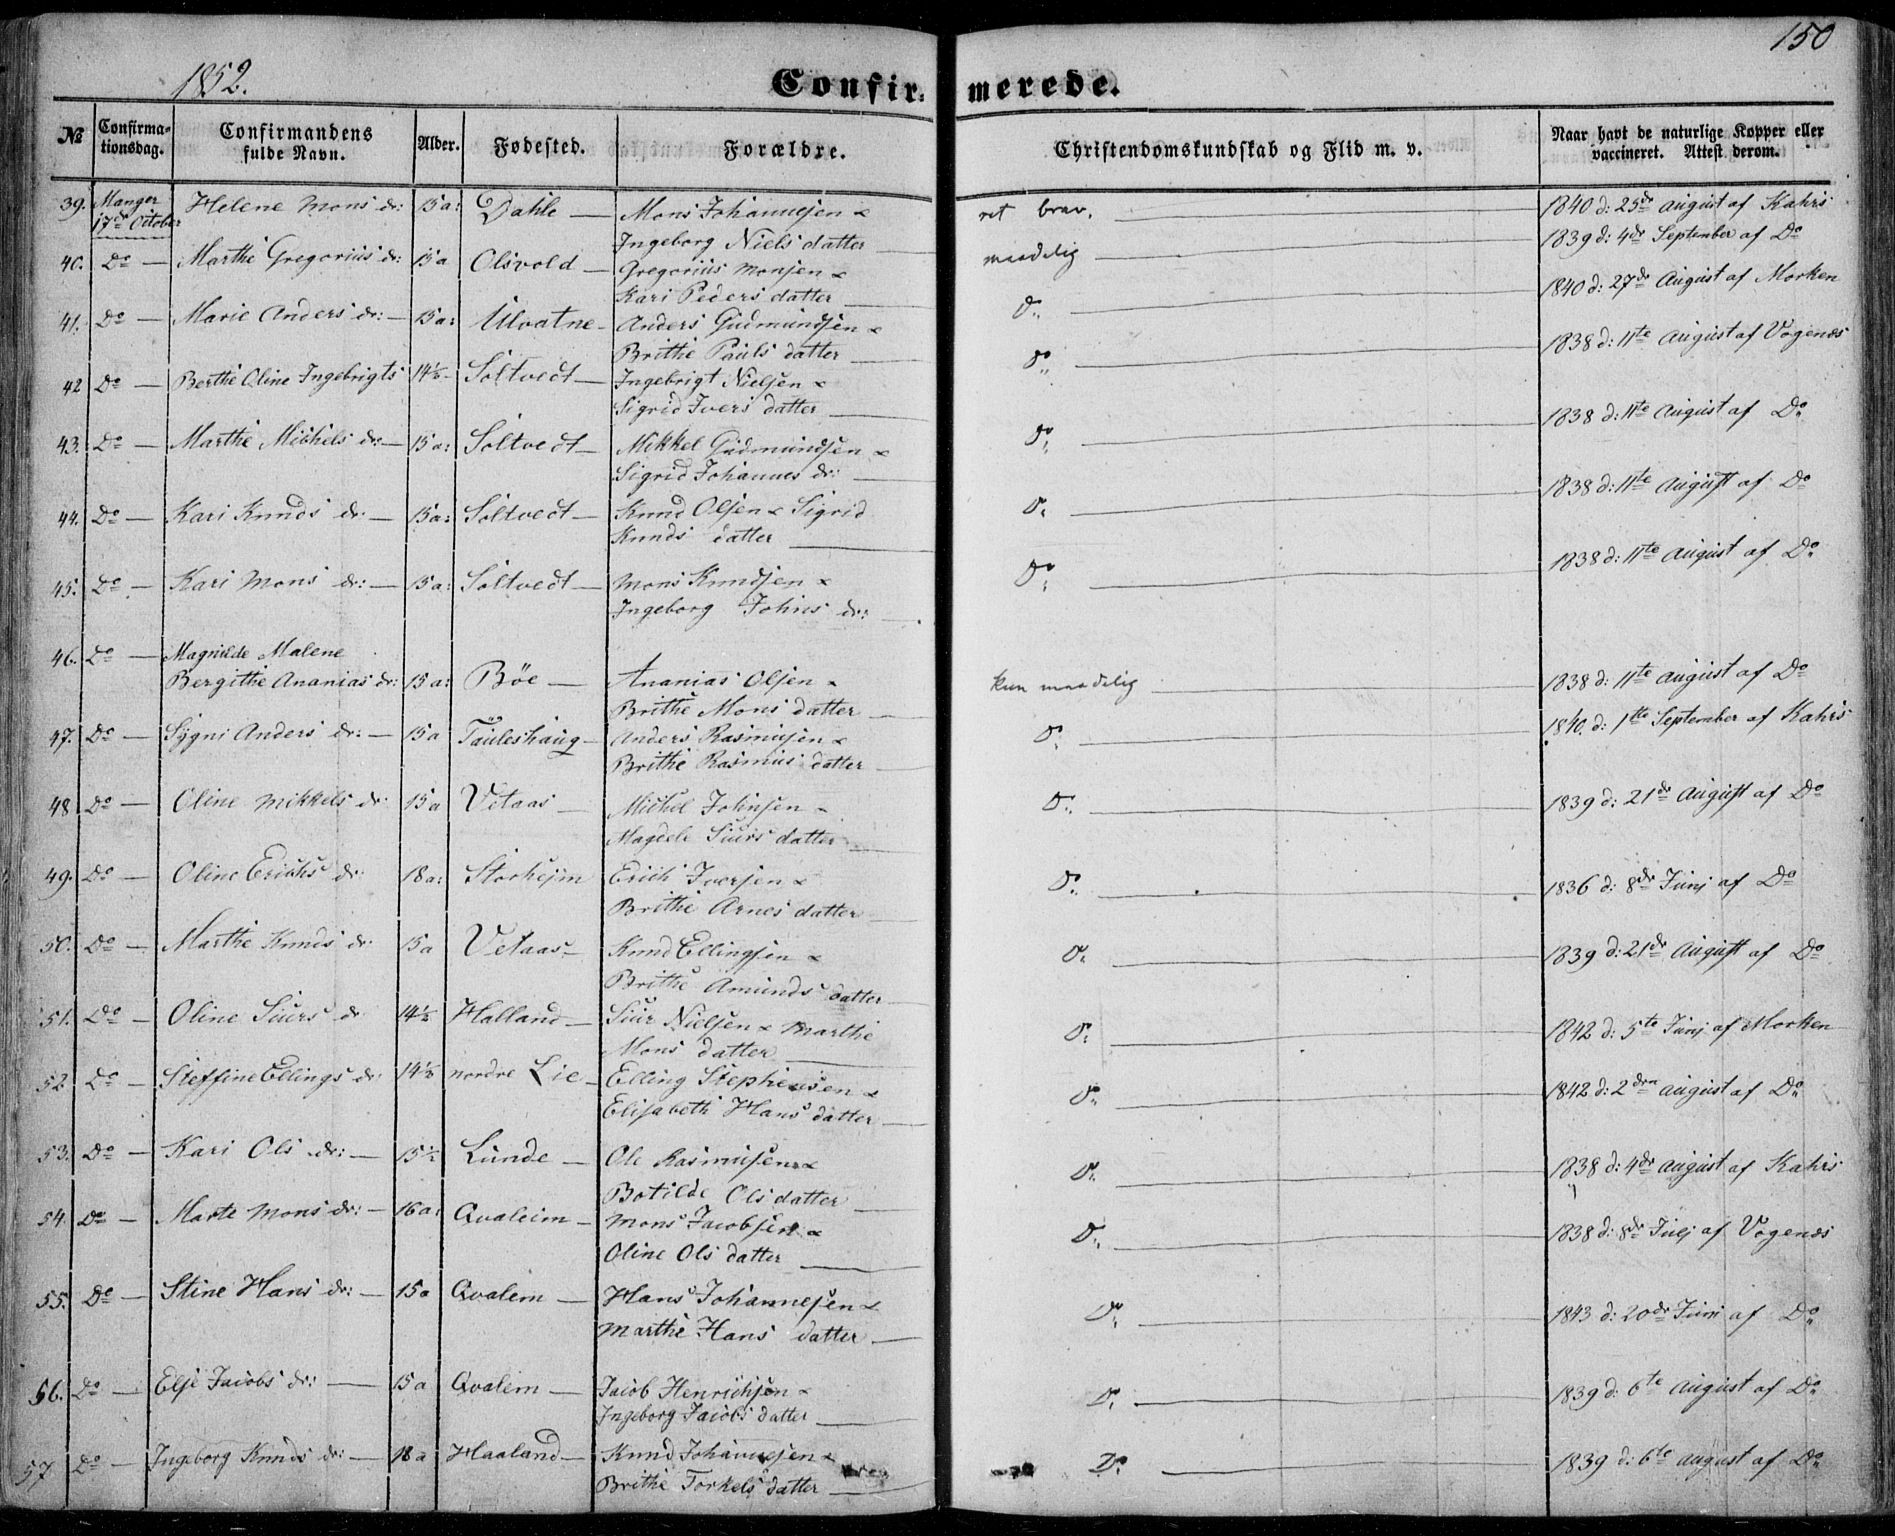 150
1852.
Confir- merede.
№ Confirma-tionsdag. Confirmandens fulde Navn. Alder. Fødested. Forældre. Christendomskundskab og Flid m. v. Naar havt de naturlige Kopper eller vaccineret. Attest derom.
39. Manger 17de October Helene Mons dr: 15 a: Dahle — Mons Johannesen & ret brav. 1840 d: 25de August af Kahrs
Ingeborg Niels datter
40. Do — Marthe Gregorius dr: 15 a Olsvold — Gregorius Monsen & maadelig 1839 d: 4de September af Do
Kari Peders datter
41. Do — Marie Anders dr: — 15 a: Ulvatne — Anders Gudmundsen & Do 1840 d: 27de August af Morken
Brithe Pauls datter
42 Do — Berthe Oline Ingebrigts 14½ Soltvedt — Ingebrigt Nielsen & Do 1838 d: 11te August af Vogenes
Sigrid Ivers datter
43. Do — Marthe Michels dr: — 15 a: Soltvedt — Mikkel Gudmundsen & Do 1838 d: 11te August af Do
Sigrid Johannes dr:
44. Do — Kari Knuds dr. — 15 a: Soltvedt — Knud Olsen & Sigrid Do 1838 d: 11te August af Do
Knuds datter
45. Do — Kari Mons dr: — 15 a: Soltvedt — Mons Knudsen & Do 1838 d: 11te August af Do
Ingeborg Johns dr:
46. Do — Magnilde Malene
Bergithe Ananias dr: 15 a: Bøe — Ananias Olsen & kun maadelig 1838 d: 11te August af Do
Brithe Mons datter
47. Do — Sygni Anders dr: — 15 a Tauleshaug — Anders Rasmusen & Do 1840. d: 1ste September af Kahrs
Brithe Rasmus datter
48 Do — Oline Mikkels dr 15 a Vetaas — Michel Johnsen & Do 1839 d: 21de August af Do
Magdele Siurs datter
49. Do — Oline Erichs dr 18 a: Storhejm Erich Iversen & Do 1836 d: 8de Junj af Do
Brithe Arnes datter
50. Do — Marthe Knuds dr. 15 a Vetaas — Knud Ellingsen & Do 1839 d: 21de August af Do
Brithe Amunds datter
51. Do — Oline Siurs dr 14½ Halland — Siur Nielsen & Marthe Do 1842 d: 5te Junj af Morken
Mons datter
52 Do — Steffine Ellings dr: 14½ nordre Lie — Elling Stephensen & Do 1842 d: 2den August af Do
Elisabeth Hans datter
53. Do — Kari Ols dr: — 15½ Lunde — Ole Rasmusen & Do 1838 d: 4de August af Kahrs
Botilde Ols datter
54. Do — Marte Mons dr: — 16 a: Qvaleim — Mons Jacobsen & Do 1838 d: 8de Julj af Vogenes
Oline Ols datter
55. Do — Stine Hans dr: — 15 a Qvalem — Hans Johannesen & Do 1843 d: 20de Junj af Do
Marthe Hans datter
56. Do — Else Jacobs dr: — 15 a Qvalem — Jacob Henrichsen & Do 1839 d: 6te August af Do
Ingeborg Jacobs datter
57 Do — Ingeborg Knuds dr: — 18 a Haaland — Knud Johannesen & Do 1839 d: 6te August af Do
Brithe Torkels datter